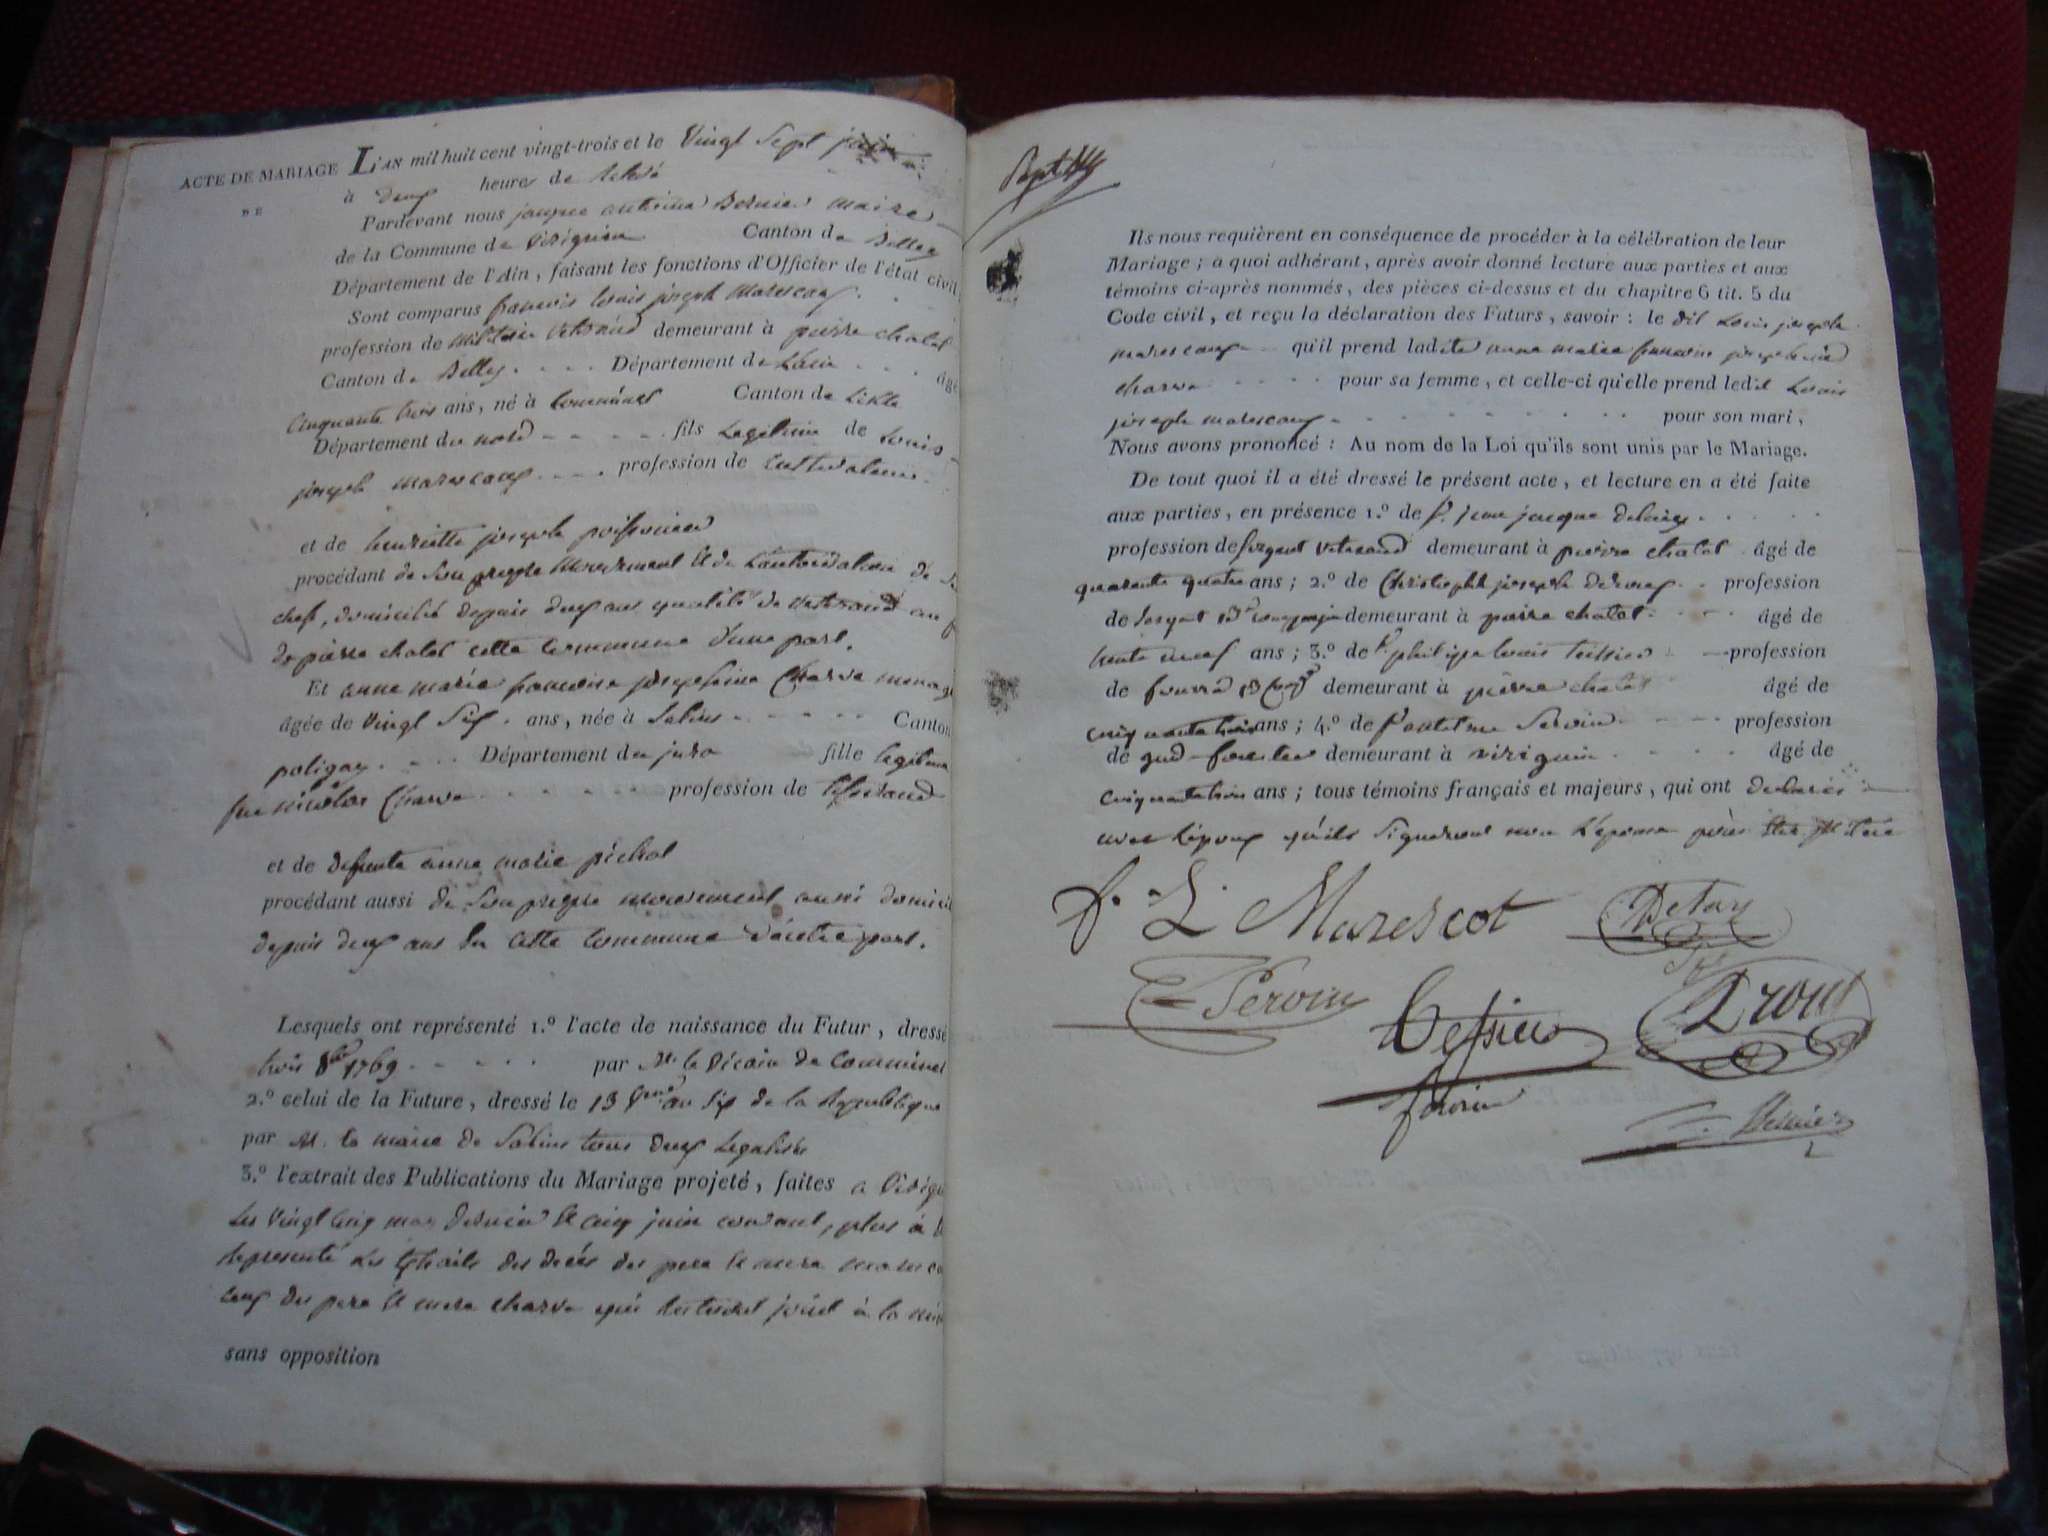 ACTE DE MARIAGE
DE
L'AN mil huit cent vingt-trois et le Vingt Sept juin
à deux heures de
Pardevant nous jacques anthelme Bernier maire
de la Commune de Virignin Canton de Belley
Département de l'Ain, faisant les fonctions d'Officier de l'état civil,
Sont comparus francois Louis joseph Marescaux
profession de Militaire veterand demeurant à pierre chatel
Canton de Belley Département de Lain âgé
Cinquante trois ans, né à Comminest Canton de Lislle
Département du nord fils Legitime de Louis
joseph marescaux profession de Cultivateur
et de henriette joseph poissonier
procédant de Son propre Mouvement et de L'autorisation de
chefs, domicilié depuis deux ans qualité de veterand au
de pierre chatel cette Commune d'une part.
Et anne marie francoise josephine Charve menag
âgée de Vingt Six ans, née à Salins Canton
poligny Département du jura fille legitime
feu nicolas Charve profession de tisserand
et de defunte anne marie péchot
procédant aussi de Son propre mouvement aussi domicil
depuis deux ans En Cette Commune d'autre part.
Lesquels ont représenté 1.º l'acte de naissance du Futur, dressé
trois 8bre 1769 par Mr. le Vicaire de Comminest
2.º celui de la Future, dressé le 13 an Six de la Republique
par M. le maire de Salins tous deux Legalisés
3.º l'extrait des Publications du Mariage projeté, faites a Virign
Les Vingt cinq may dernier et cinq juin courant, plus à
representé Les Extraits des décés des pere et mere maresc
caux des pere et mere charve qui resteront joint à la
sans opposition
Ils nous requièrent en conséquence de procéder à la célébration de leur
Mariage; à quoi adhérant, après avoir donné lecture aux parties et aux
témoins ci-après nommés, des pièces ci-dessus et du chapitre 6 tit. 5 du
Code civil, et reçu la déclaration des Futurs, savoir: le dit Louis joseph
marescaux qu'il prend ladite anne marie francoise josephine
charve pour sa femme, et celle-ci qu'elle prend ledit Louis
joseph marescaux pour son mari,
Nous avons prononcé: Au nom de la Loi qu'ils sont unis par le Mariage.
De tout quoi il a été dressé le présent acte, et lecture en a été faite
aux parties, en présence 1.º de Sr. jean jacque
profession de Sergent veterand demeurant à pierre chatel âgé de
quarante quatre ans; 2.º de Christophe joseph profession
de Sergent demeurant à pierre chatel âgé de
trente neuf ans; 3.º de Sr. philippe louis teissier profession
de demeurant à pierre chatel âgé de
cinquante trois ans; 4.º de Pantelme Servin profession
de gard-forestier demeurant à virignin âgé de
cinquante trois ans; tous témoins français et majeurs, qui ont declarés
avec L'époux qu'ils Signeront non L'epouse pour
f. L. Marescot